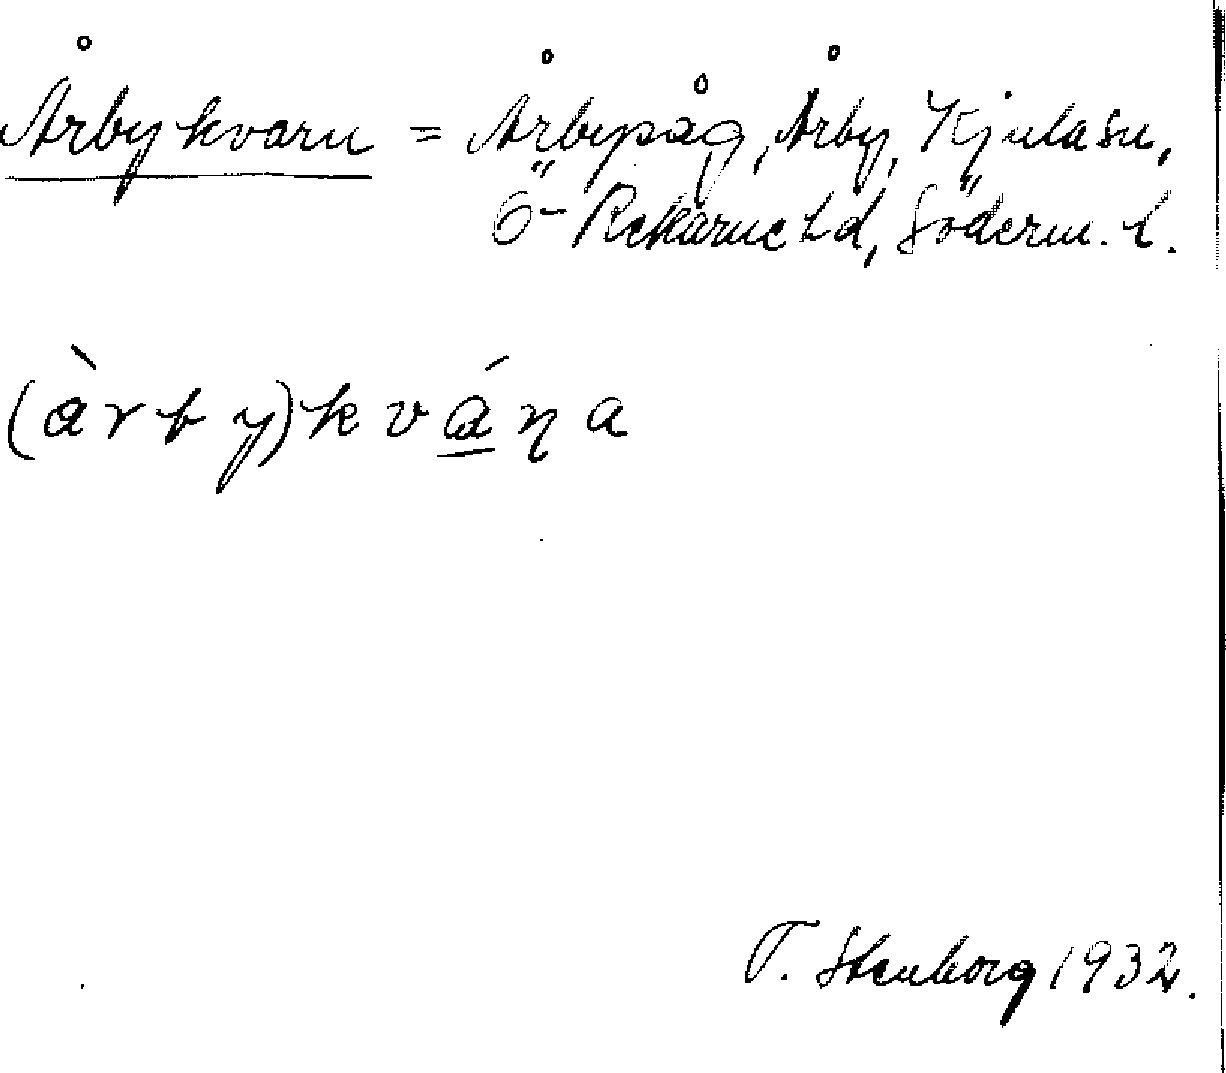 Årby kvarn = Årbypåg, Årby, Kjula sn,
Ö-Rekarne hd, Söderm. l.
(àrby)kváṇa
T. Stenborg 1932.